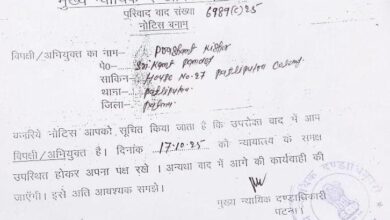 मुख्य न्यायिक
परिवाद वाद संख्या 6989(c)25
नोटिस बनाम्
विपक्षी/अभियुक्त का नाम- Prashant Kishor
पे०- Srikant Pandey
साकिन- House No.27 Patliputra Colony
थाना- Patliputra
जिला- Patna
बजरिये नोटिस आपको सूचित किया जाता है कि उपरोक्त वाद में आप
विपक्षी/अभियुक्त है। दिनांक 17.10.25 को न्यायालय के समक्ष
उपस्थित होकर अपना पक्ष रखे । अन्यथा वाद में आगे की कार्यवाही की
जाएँगी। इसे अति आवश्यक समझे।
मुख्य न्यायिक दण्डाधिकारी
पटना।